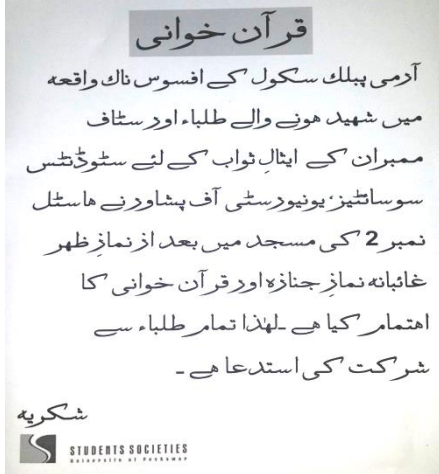 قرآن خوانی
آرمی پبلك سكول كے افسوس ناك واقعہ
میں شهید هونے والے طلباء اور سٹاف
ممبران كے ایثالِ ثواب كے لئے سٹوڈنٹس
سوسائٹیز، یونیورسٹی آف پشاور نے هاسٹل
نمبر 2 كی مسجد میں بعد از نمازِ ظهر
غائبانہ نمازِ جنازہ اور قرآن خوانی كا
اهتمام كیا هے ۔لهٰذا تمام طلباء سے
شركت كی استدعا هے ۔
شكریہ
STUDENTS SOCIETIES
University of Peshawar